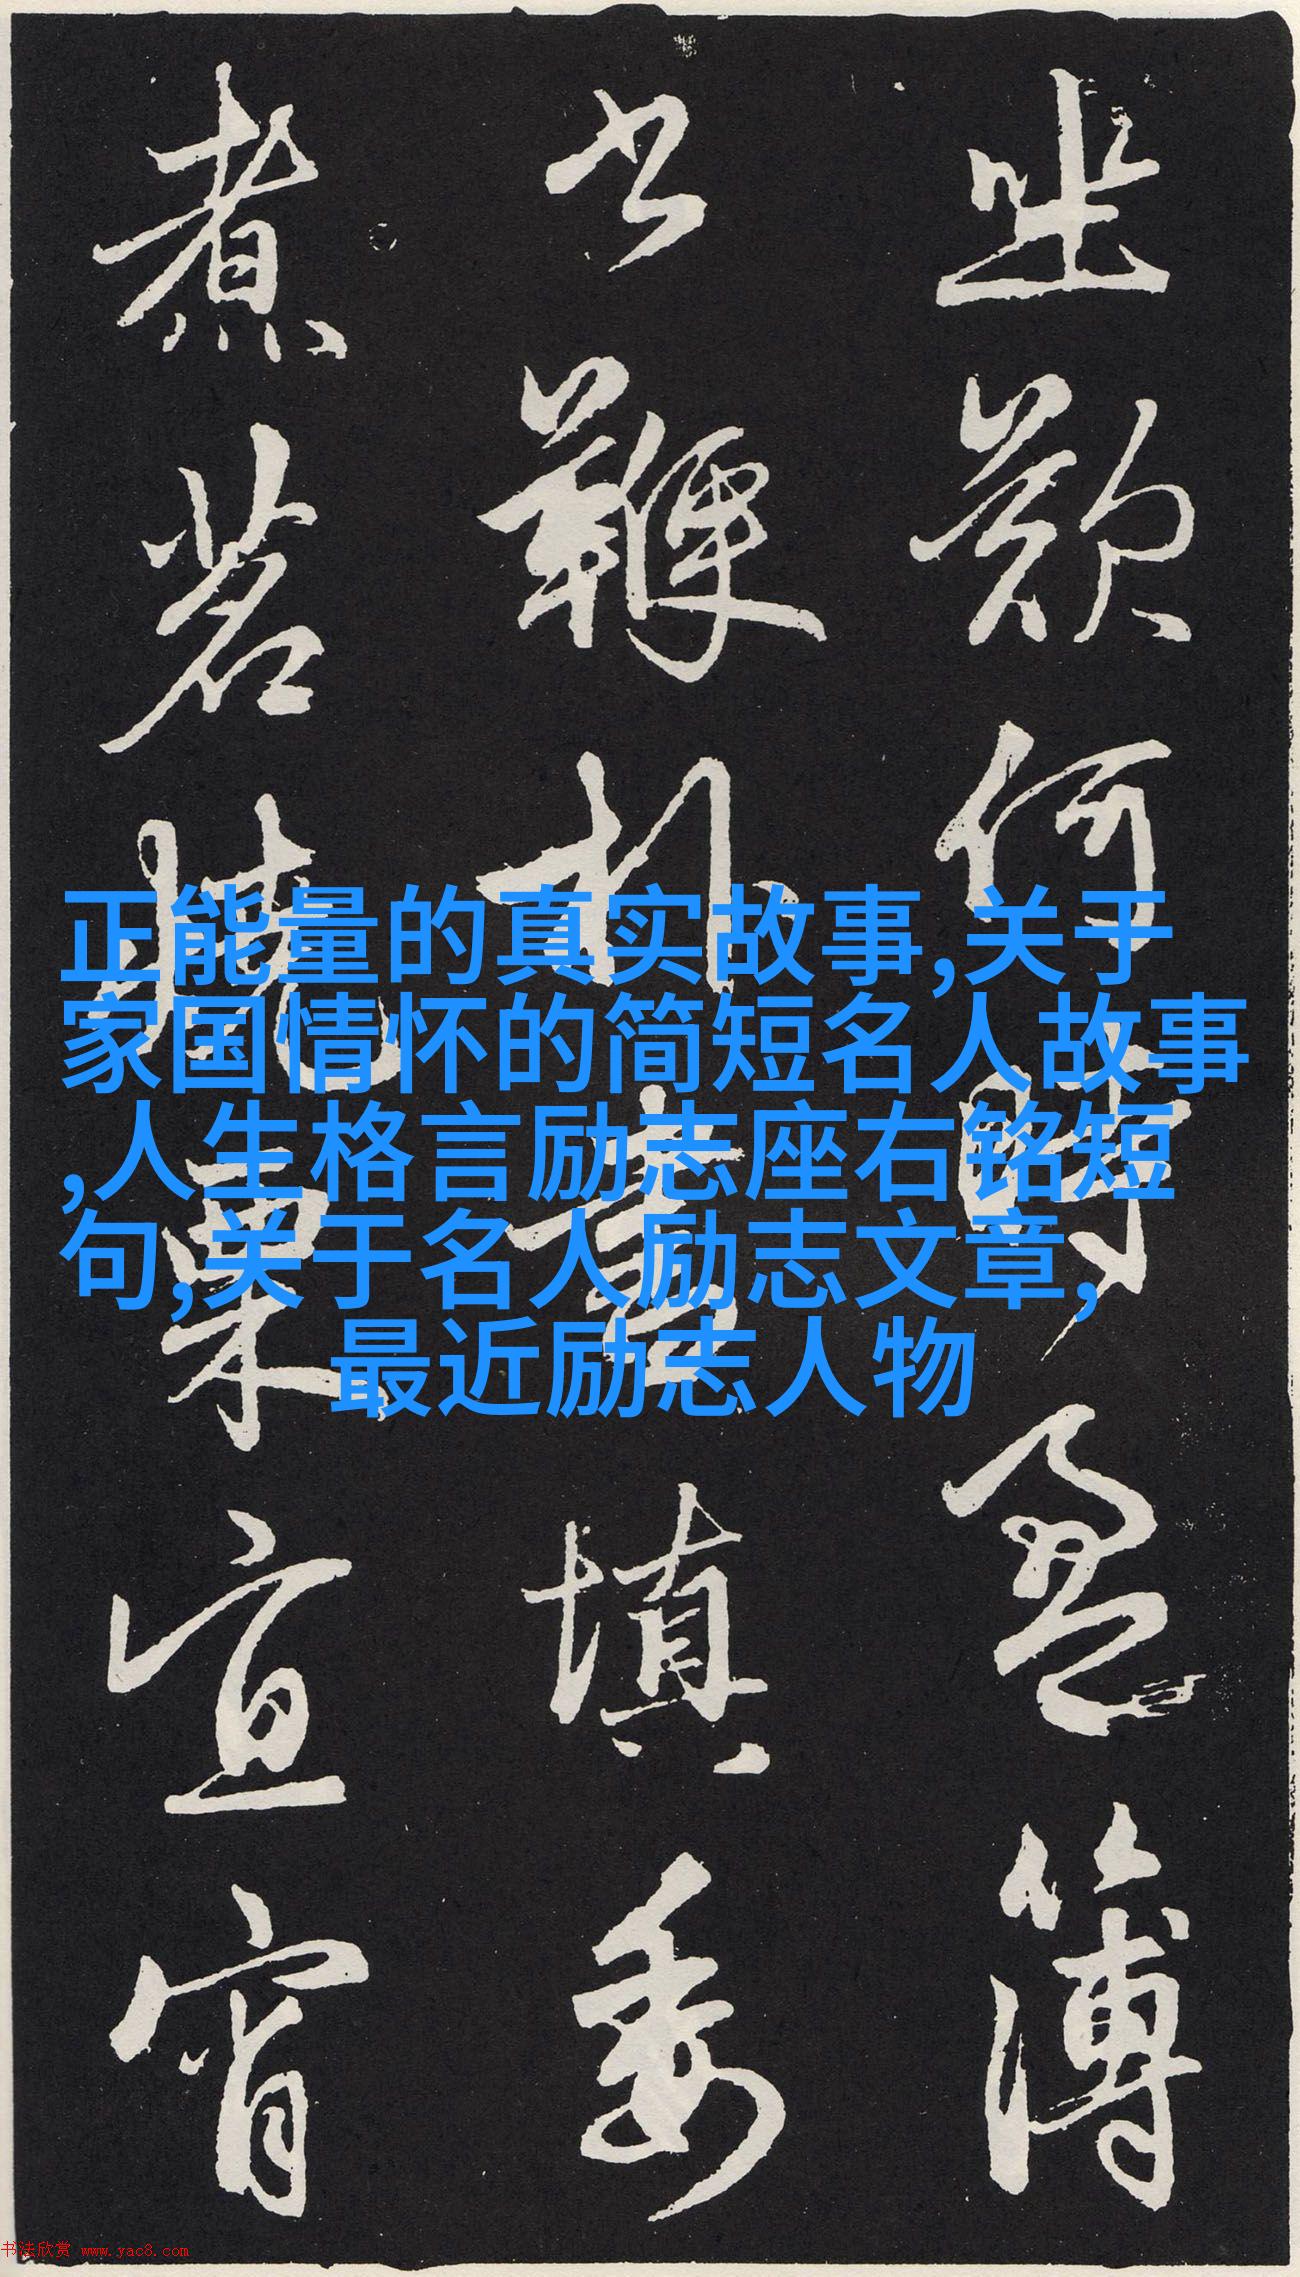 正能量的真实故事,关于
家国情怀的简短名人故事
,人生格言励志座右铭短
句,关于名人励志文章,
最近励志人物
何時簿
書鞭朴晝填委
煮茗燒栗宜宵
书法欣赏 www.yac8.com